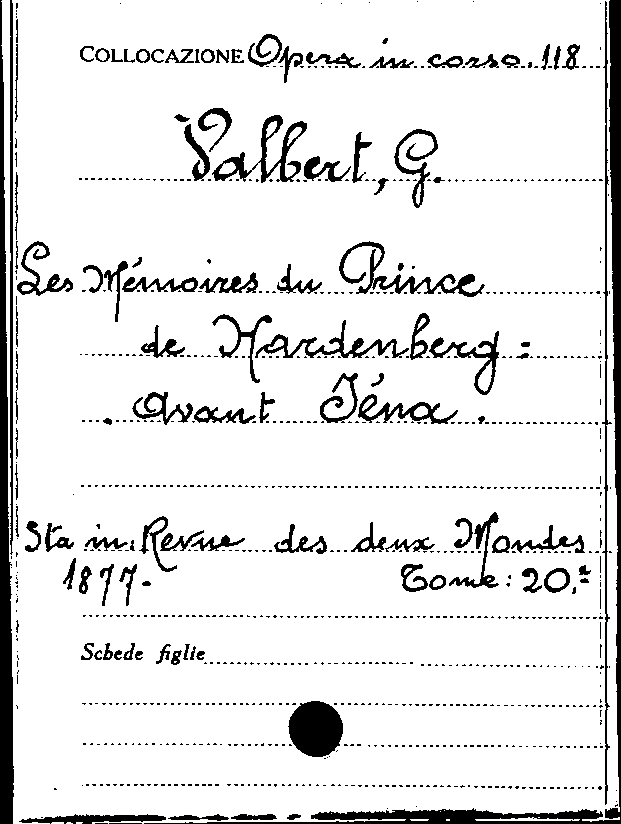 COLLOCAZIONE Opera in corso. 118
Valbert, G.
Les Mémoires du Prince
de Hardenberg :
. Avant Jéna .
Sta in: Revue des deux Mondes
1877- Tome: 20.º
Schede figlie